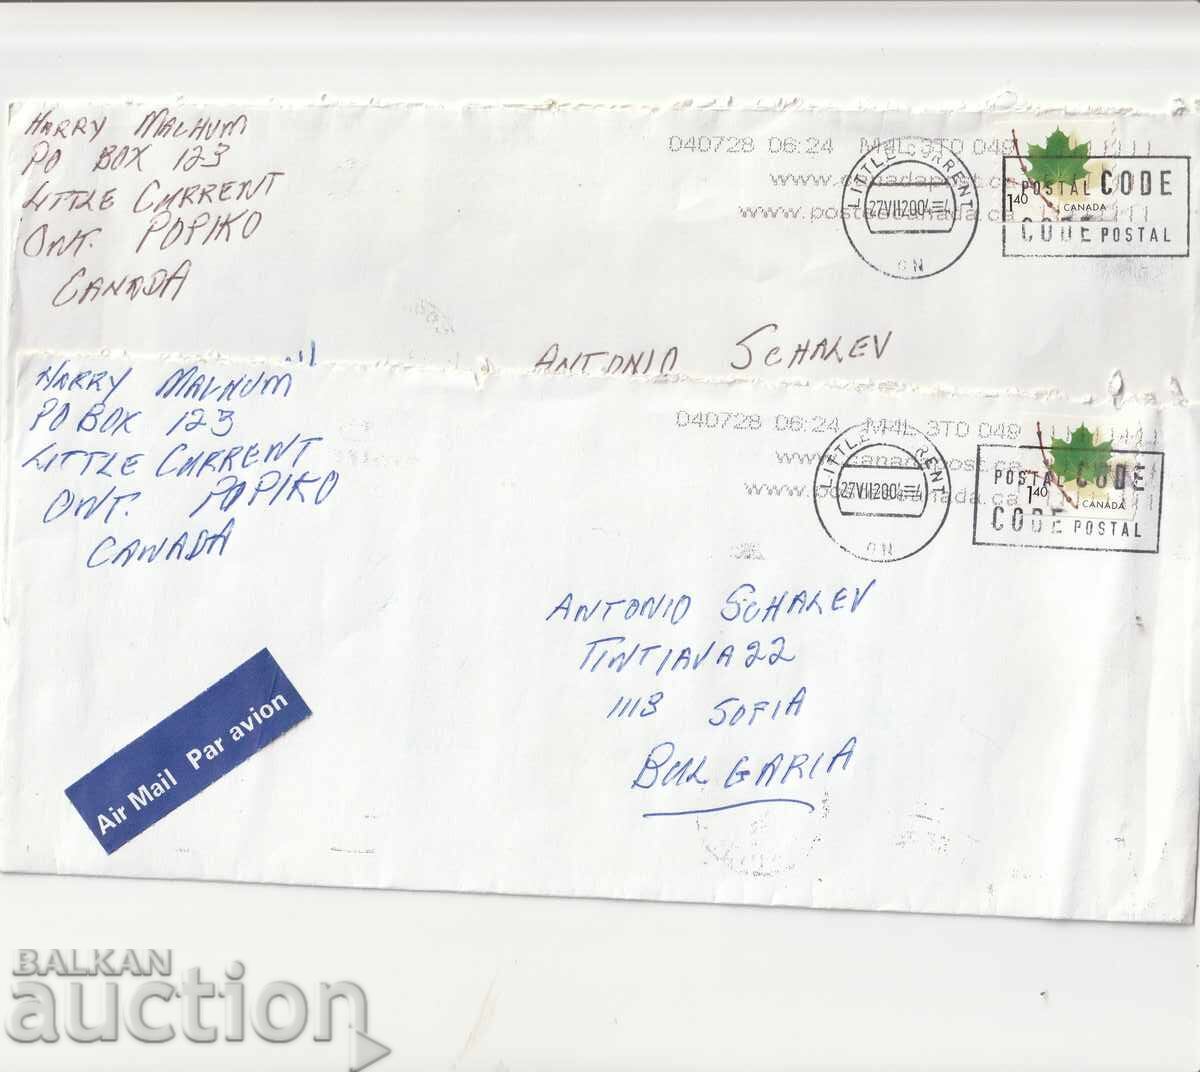 HARRY MALHUM
PO BOX 123
LITTLE CURRENT
ONT. POPIKO
CANADA
040728 06:24 M4L 3T0 049
www.canadapost.ca
www.postescanada.ca
LITTLE CURRENT
27VII2004
ON
POSTAL CODE
CODE POSTAL
1.40
CANADA
ANTONIO SCHALEV
HARRY MALHUM
PO BOX 123
LITTLE CURRENT
ONT. POPIKO
CANADA
040728 06:24 M4L 3T0 049
www.canadapost.ca
www.postescanada.ca
LITTLE CURRENT
27VII2004
ON
POSTAL CODE
CODE POSTAL
1.40
CANADA
ANTONIO SCHALEV
TINTIAVA 22
1113 SOFIA
BULGARIA
Air Mail Par avion
BALKAN
auction